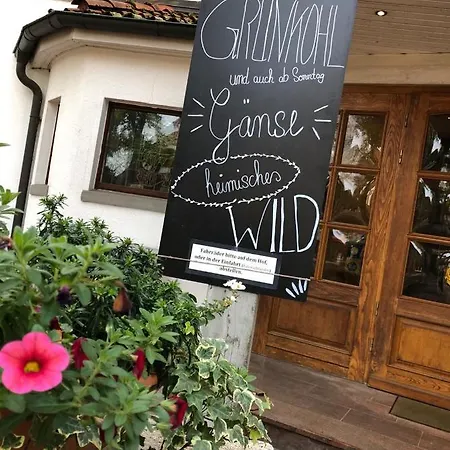 GRÜNKOHL
und auch ab Sonntag
Gänse
heimisches
WILD
Fahrräder bitte auf dem Hof,
oder in der Einfahrt
abstellen.